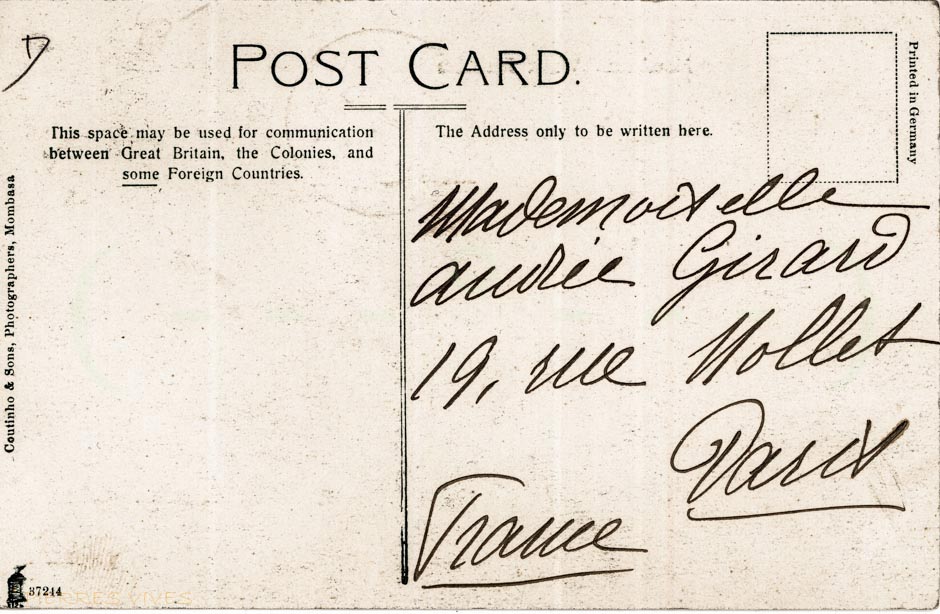 POST CARD.
This space may be used for communication
between Great Britain, the Colonies, and
some Foreign Countries.
The Address only to be written here.
Printed in Germany
Mademoiselle
Andrée Girard
19, rue Nollet
Paris
France
Coutinho & Sons, Photographers, Mombasa
37244